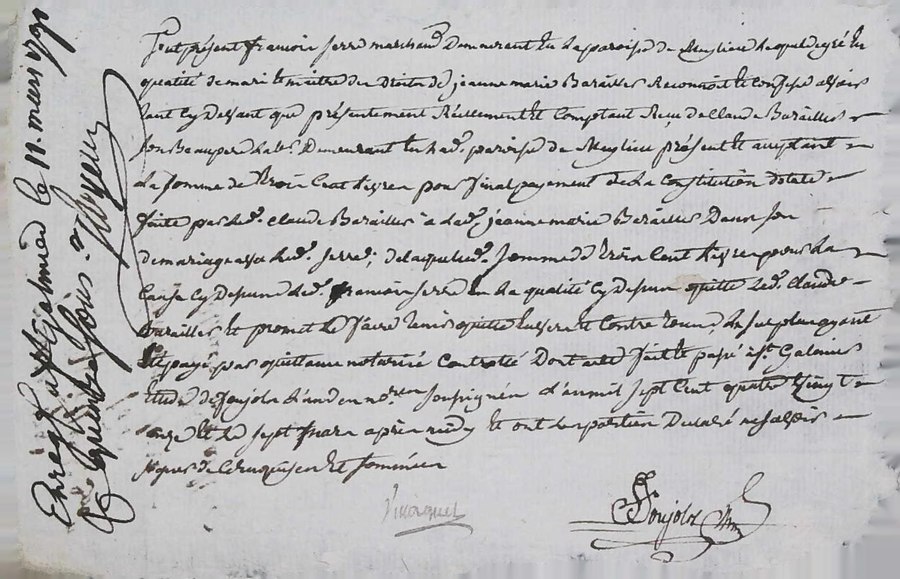 fut présent françois serre marchand Demeurant en La paroisse de Meylieu Lequel degré en
qualité de mari et maitre des Droits de jeanne marie Barailler Reconnoit et confesse avoir
Cy Devant que présentement Réellement et Comptant Reçu de Claude Barailler
son Beaupere Demeurant en lad. paroisse de Meylieu présent et acceptant
La somme de trois Cent Livres pour final payement de La Constitution dotale
faite par led. Claude Barailler à lad. jeanne marie Barailler Dans son
de mariage avec led. serre, de laquelle somme de trois Cent Livres pour La
Cause Cy Dessus led. françois serre en La qualité Cy Dessus quitte led. claude
Barailler et promet Le faire tenir quitte Envers et Contre tous, Le surplus ayant
Eté payé par quittance notariée Controllé Dont acte fait et passé à St. Galmier
Etude de Soujolz L'un des no.res soussignés L'an mil sept Cent quatre vingt
onze et Le sept mars après midy et ont Les parties Déclaré ne savoir
signer de Ce requises et sommées
Soujolz
Enreg. à St Galmier le 11. mars 1791
Reçu quinze sous